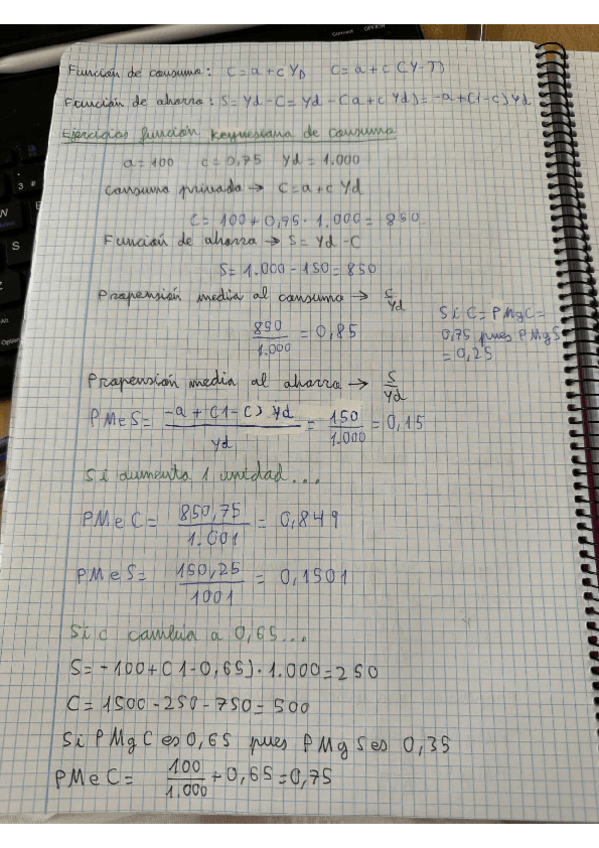 Función de consumo: C = a + c YD   C = a + c (Y-T)
Función de ahorro: S = Yd - C = Yd - (a + c Yd) = -a + (1-c) Yd
Ejercicios función keynesiana de consumo
a = 100   c = 0,75   Yd = 1.000
Consumo privado → C = a + c Yd
C = 100 + 0,75 · 1.000 = 850
Función de ahorro → S = Yd - C
S = 1.000 - 150 = 850
Propensión media al consumo → C/Yd
850/1.000 = 0,85
Si C = PMgC =
0,75 pues PMgS
= 0,25
Propensión media al ahorro → S/Yd
PMeS = -a + (1-c) Yd / Yd = 150/1.000 = 0,15
Si aumenta 1 unidad...
PMeC = 850,75/1.001 = 0,849
PMeS = 150,25/1001 = 0,1501
Si c cambia a 0,65...
S = -100 + (1-0,65) · 1.000 = 250
C = 1500 - 250 - 750 = 500
Si PMgC es 0,65 pues PMgS es 0,35
PMeC = 100/1.000 + 0,65 = 0,75